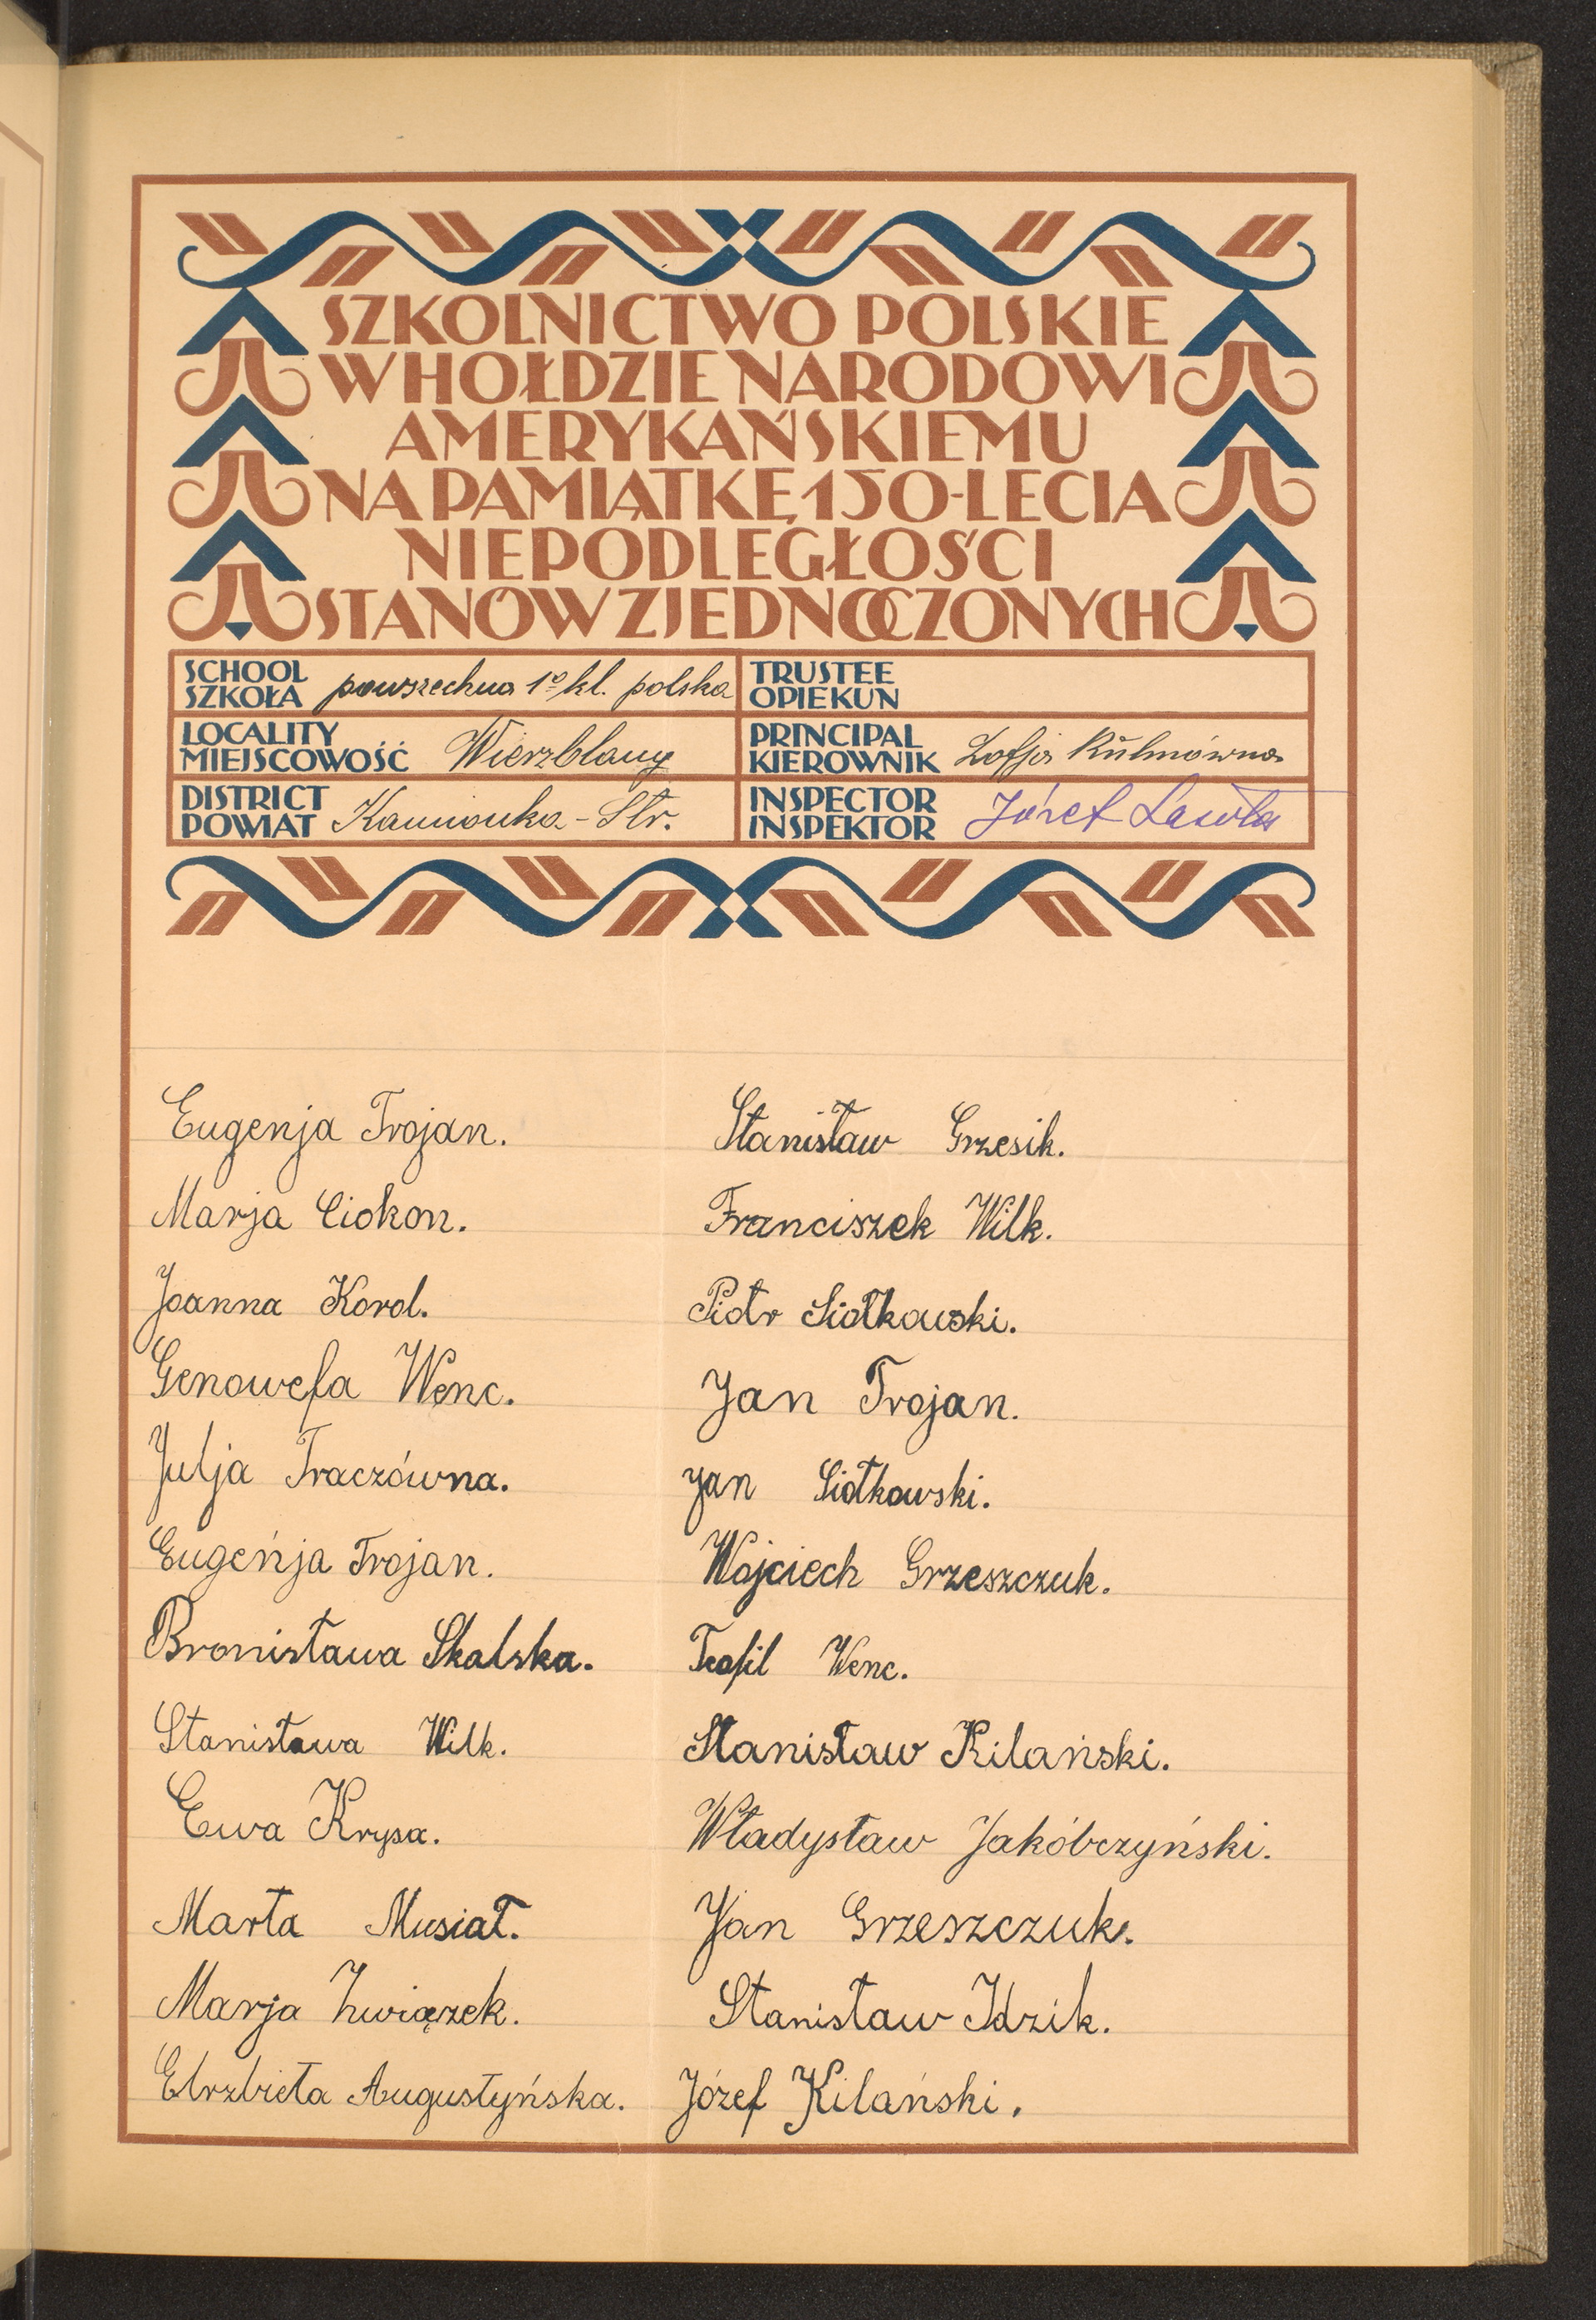 SZKOLNICTWO POLSKIE
W HOŁDZIE NARODOWI
AMERYKAŃSKIEMU
NA PAMIĄTKĘ 150-LECIA
NIEPODLEGŁOŚCI
STANÓW ZJEDNOCZONYCH
SCHOOL
SZKOŁA powszechna 1o kl. polska
TRUSTEE
OPIEKUN
LOCALITY
MIEJSCOWOŚĆ Wierzblany
PRINCIPAL
KIEROWNIK Zofja Kulmówna
DISTRICT
POWIAT Kamionka-Str.
INSPECTOR
INSPEKTOR Józef
Eugenja Trojan.
Marja Ciokon.
Joanna Korol.
Genowefa Wenc.
Julja Traczówna.
Eugeńja Trojan.
Bronisława Skalska.
Stanisława Wilk.
Ewa Krysa.
Marta Musiał.
Marja Związek.
Elrzbieta Augustyńska.
Stanisław Grzesik.
Franciszek Wilk.
Piotr Siotkowski.
Jan Trojan.
Jan Siotkowski.
Wojciech Grzeszczuk.
Teofil Wenc.
Stanisław Kilański.
Władysław Jakóbczyński.
Jan Grzeszczuk.
Stanisław Idzik.
Józef Kilański.